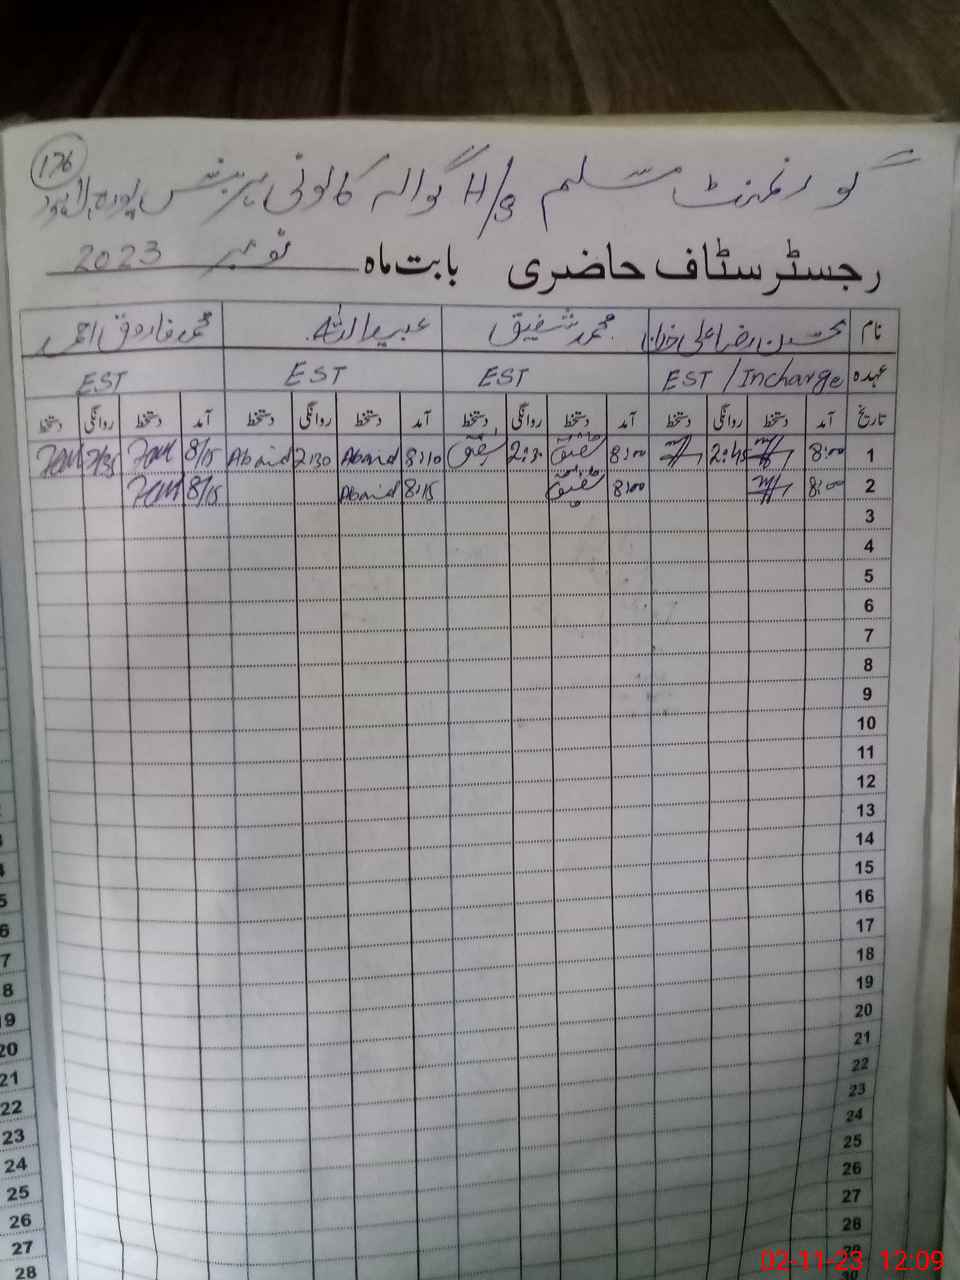 176
گورنمنٹ مسلم H/S گوالہ کالونی ہربنس پورہ لاہور
رجسٹر سٹاف حاضری بابت ماہ نومبر 2023
نام محسن رضا علی خان محمد شفیق عبید اللہ محمد فاروق احمد
عہدہ EST / Incharge EST EST EST
تاریخ آمد دستخط روانگی دستخط آمد دستخط روانگی دستخط آمد دستخط روانگی دستخط آمد دستخط روانگی دستخط
1 8:00 2:45 8:00 شفیق 2:30 شفیق 8:10 Abaid 2:30 Abaid 8/15 2/35
2 8:00 8:00 شفیق 8:15 Abaid 8/15
3
4
5
6
7
8
9
10
11
12
13
14
15
16
17
18
19
20
21
22
23
24
25
26
27
28
29
19
20
21
22
23
24
25
26
27
28
02-11-23 12:09